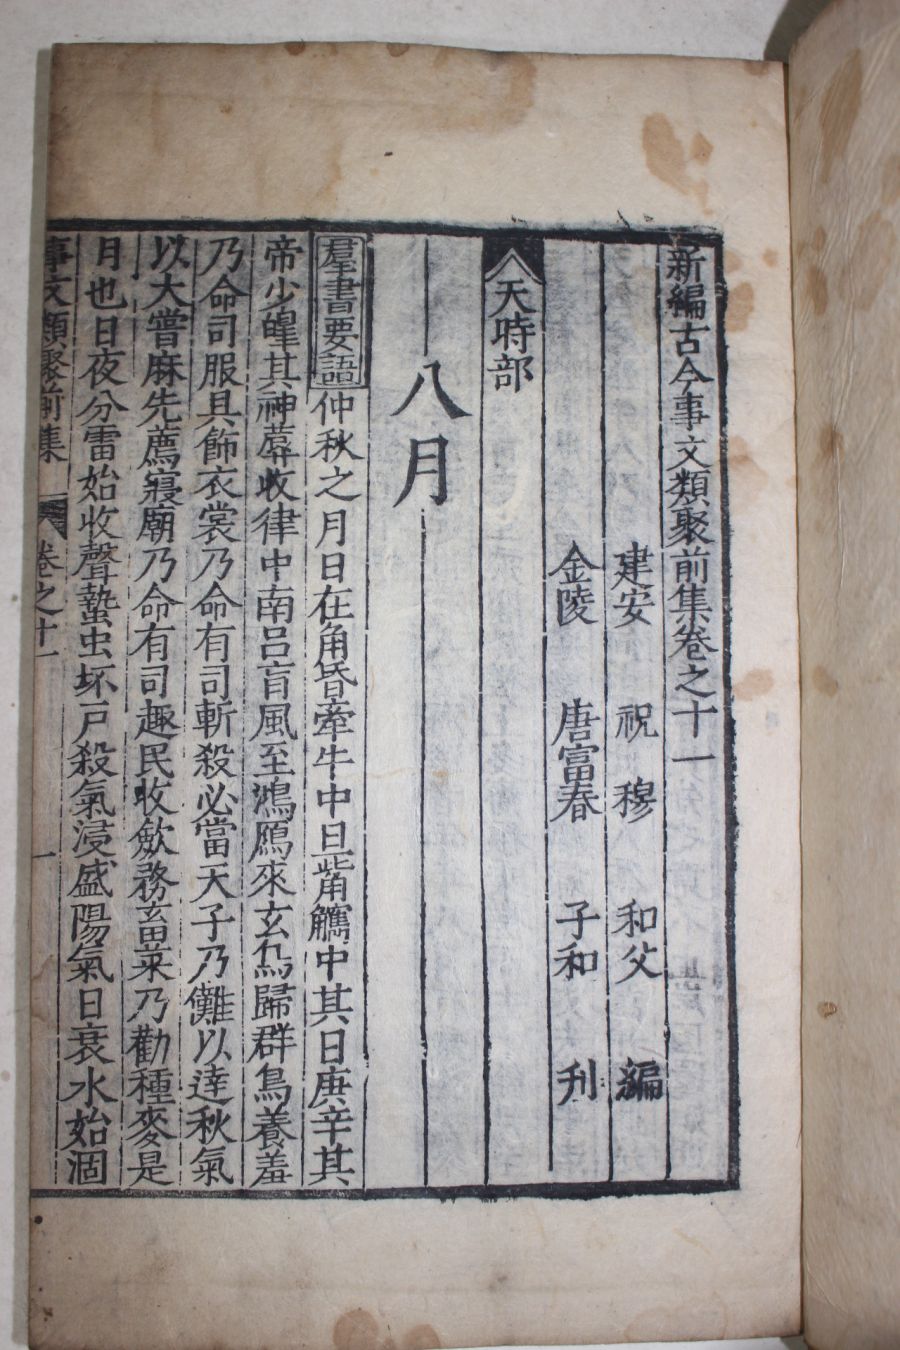 新編古今事文類聚前集卷之十一
建安 祝 穆 和父 編
金陵 唐富春 子和 刋
天時部
八月
羣書要語仲秋之月日在角昏牽牛中旦觜觿中其日庚辛其
帝少皥其神蓐收律中南呂盲風至鴻鴈來玄鳥歸群鳥養羞
乃命司服具飾衣裳乃命有司斬殺必當天子乃儺以達秋氣
以犬嘗麻先薦寢廟乃命有司趣民收歛務畜菜乃勸種麥是
月也日夜分雷始收聲蟄虫坏戸殺氣浸盛陽氣日衰水始涸
事文類聚前集 卷之十一 一